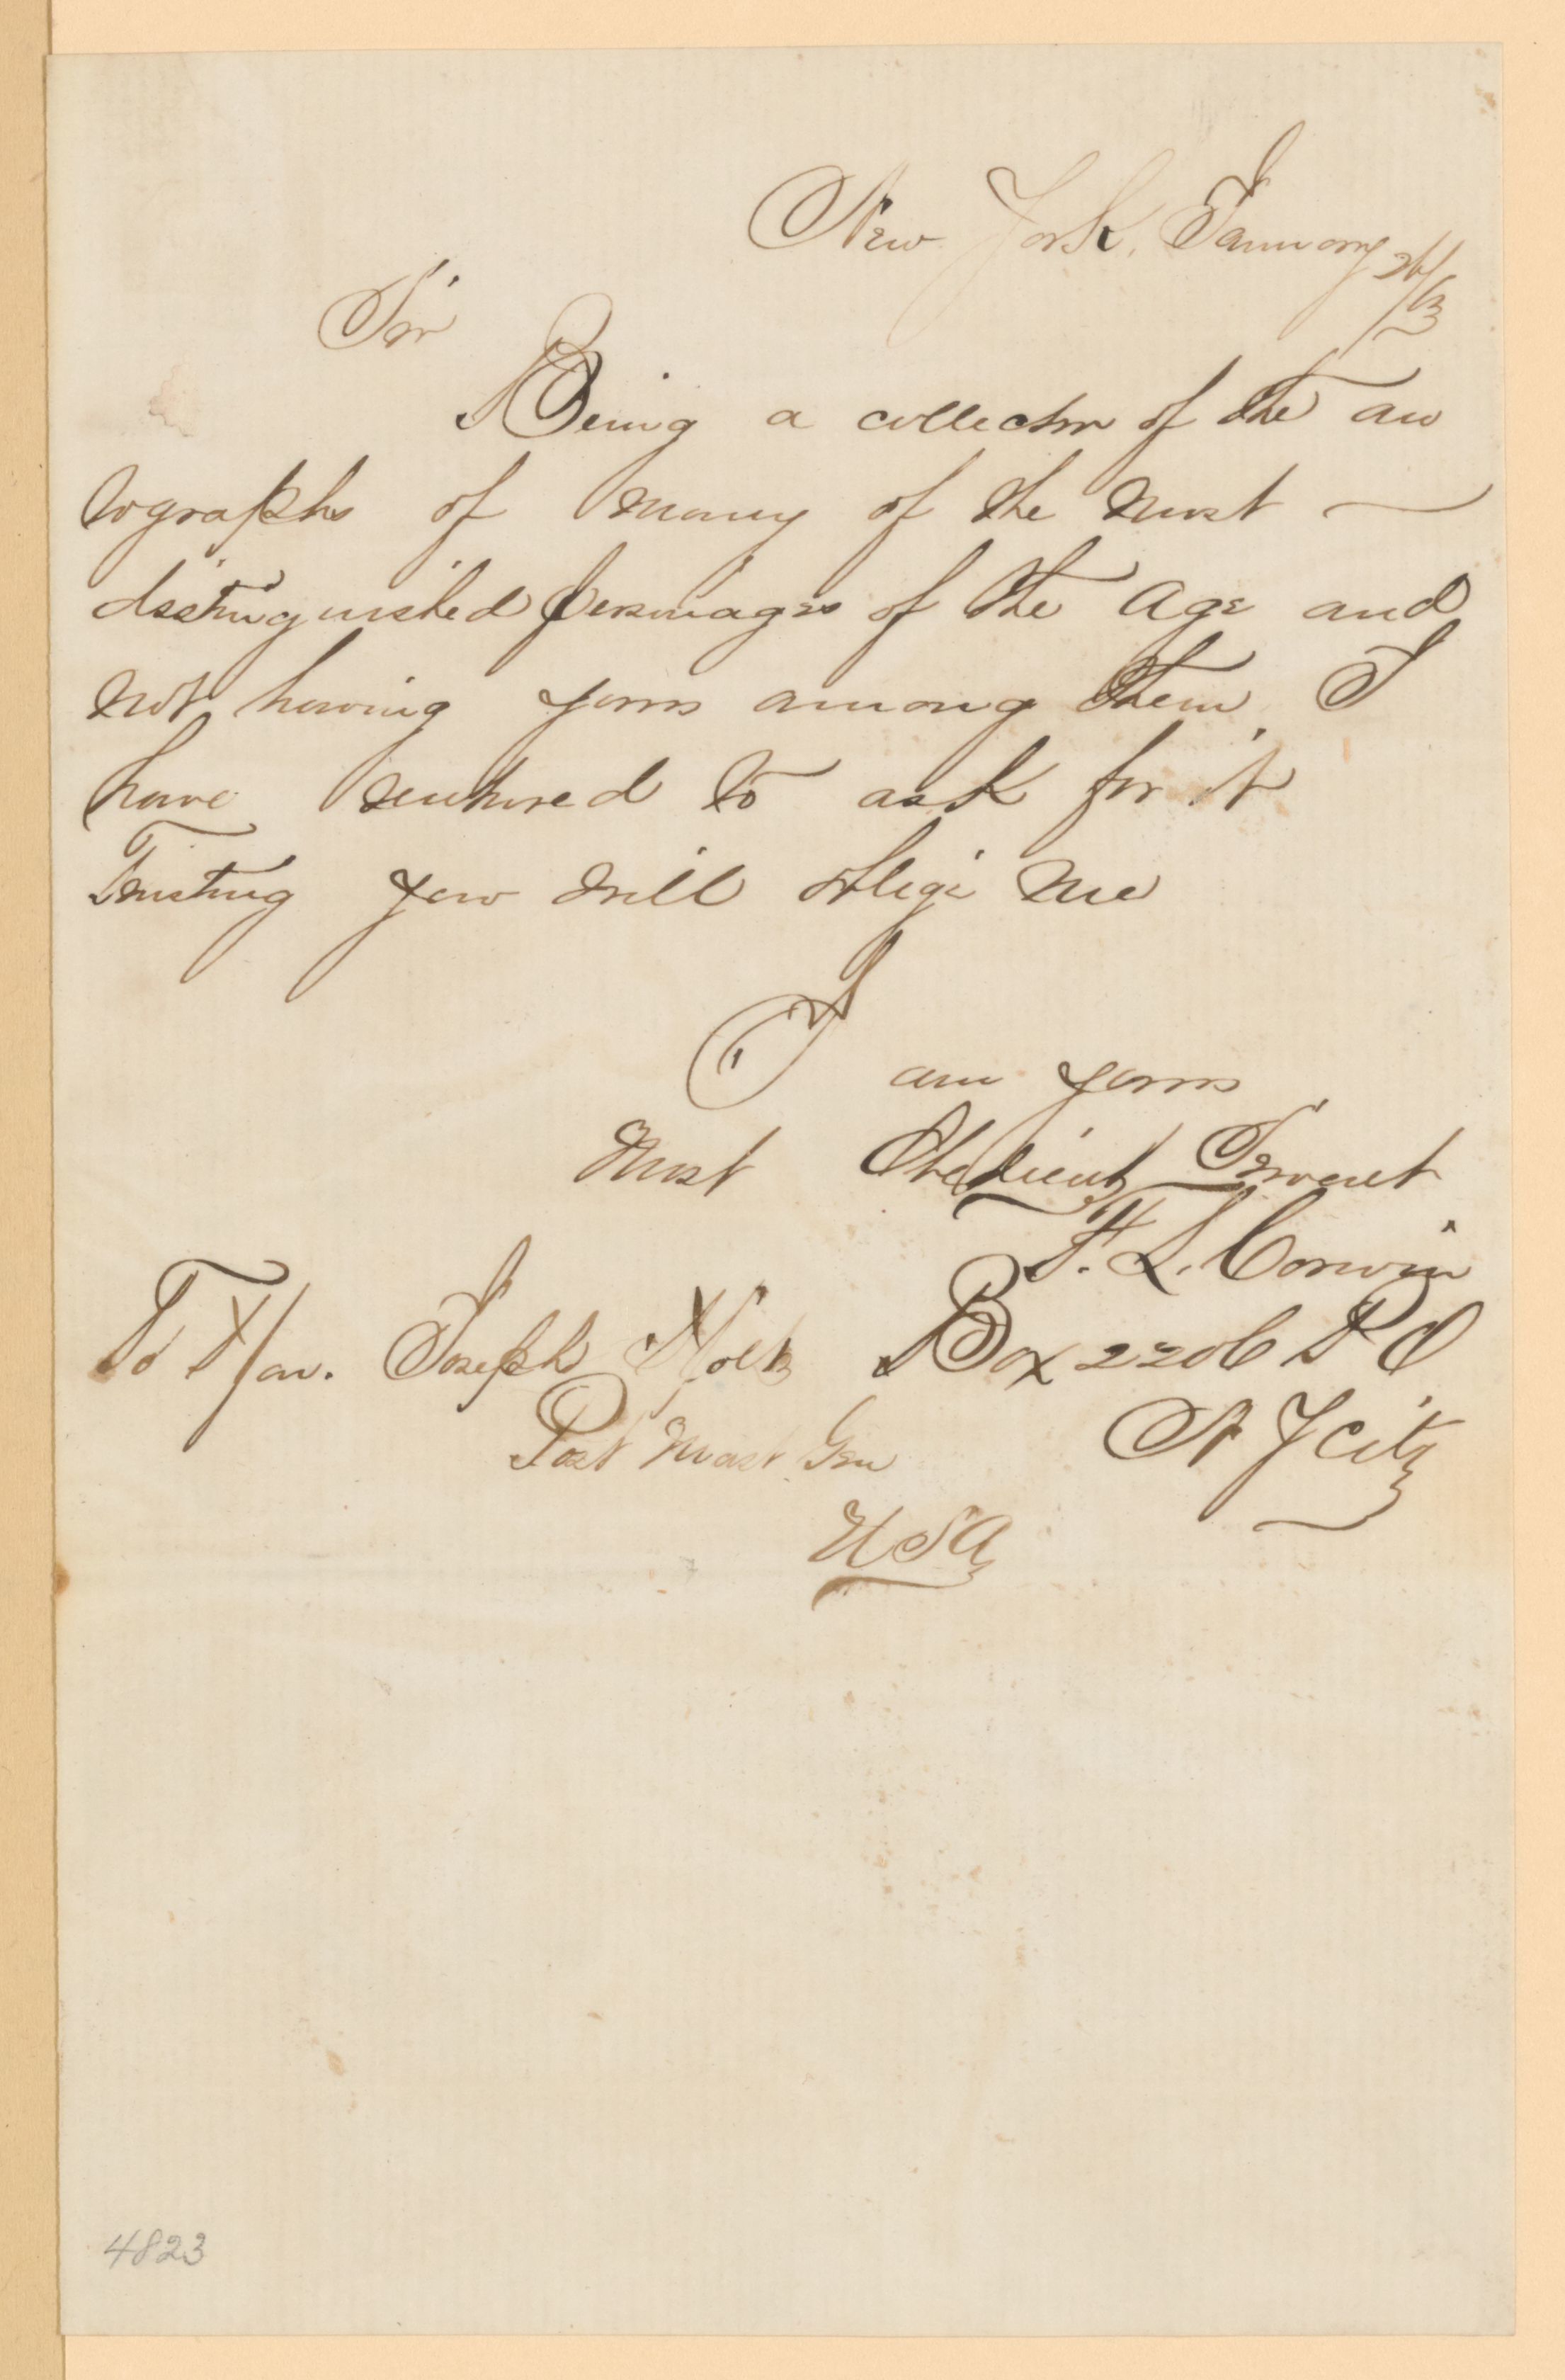 New York, January 26/63
Sir
Being a collector of the au
tographs of many of the most —
disstinguished personages of the Age and
not having yours among them I
have ventured to ask for it
Trusting you will oblige me
I
am yours
Most Obedient Servent
F. L. Corwin
To Hon. Joseph Holt Box 2206 P O
Post Mast Gen N Y City
USA
4823